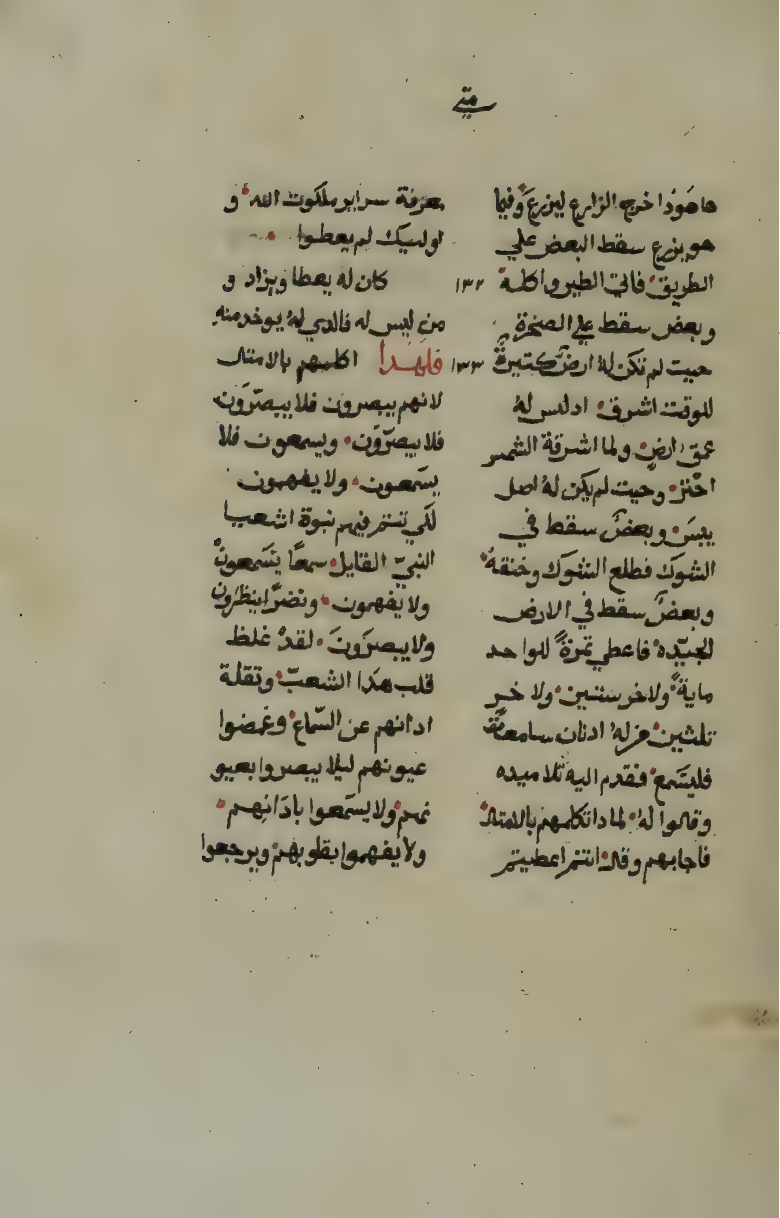 متي
هاهودا خرج الزارع ليزرع وفيما
هو يزرع سقط البعض علي
الطريق فاتي الطير واكله
وبعض سقط علي الصخرة
حيت لم تكن له ارض كتيرة
للوقت اشرق ادليس له
عمق ارض ولما اشرقة الشمس
احتز وحيت لم يكن له اصل
يبس وبعض سقط في
الشوك فطلع الشوك وخنقه
وبعض سقط في الارض
الجيده فاعطي تمرة للواحد
ماية ولاخر ستين ولاخر
تلتين من له ادنان سامعة
فليسمع فتقدم اليه تلاميده
وقالوا له لمادا تكلمهم بالامتال
فاجابهم وقال انتم اعطيتم
معرفة سراير ملكوت الله و
اوليك لم يعطوا
١٣٢ كان له يعطا ويزاد و
من ليس له فالدي له يوخد منه
١٣٣ فلهدا اكلمهم بالامتال
لانهم يبصرون فلا يبصرون
فلا يبصرون ويسمعون فلا
يسمعون ولا يفهمون
لكي تتم فيهم نبوة اشعيا
النبي القايل سمعا يسمعون
ولا يفهمون ونضرا ينظرون
ولا يبصرون لقد غلظ
قلب هدا الشعب وتقلة
ادانهم عن السماع وغمضوا
عيونهم ليلا يبصروا بعيو
نهم ولا يسمعوا بادانهم
ولا يفهموا بقلوبهم ويرجعوا